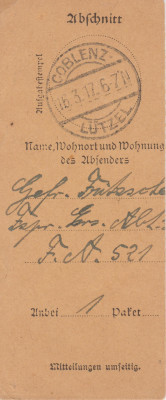 Abschnitt
Aufgabestempel
COBLENZ-
16.3.17.6-7N
LÜTZEL
Name, Wohnort und Wohnung
des Absenders
Gefr.
Ers. Abt.
F. A. 521
Anbei 1 Paket
Mitteilungen umseitig.